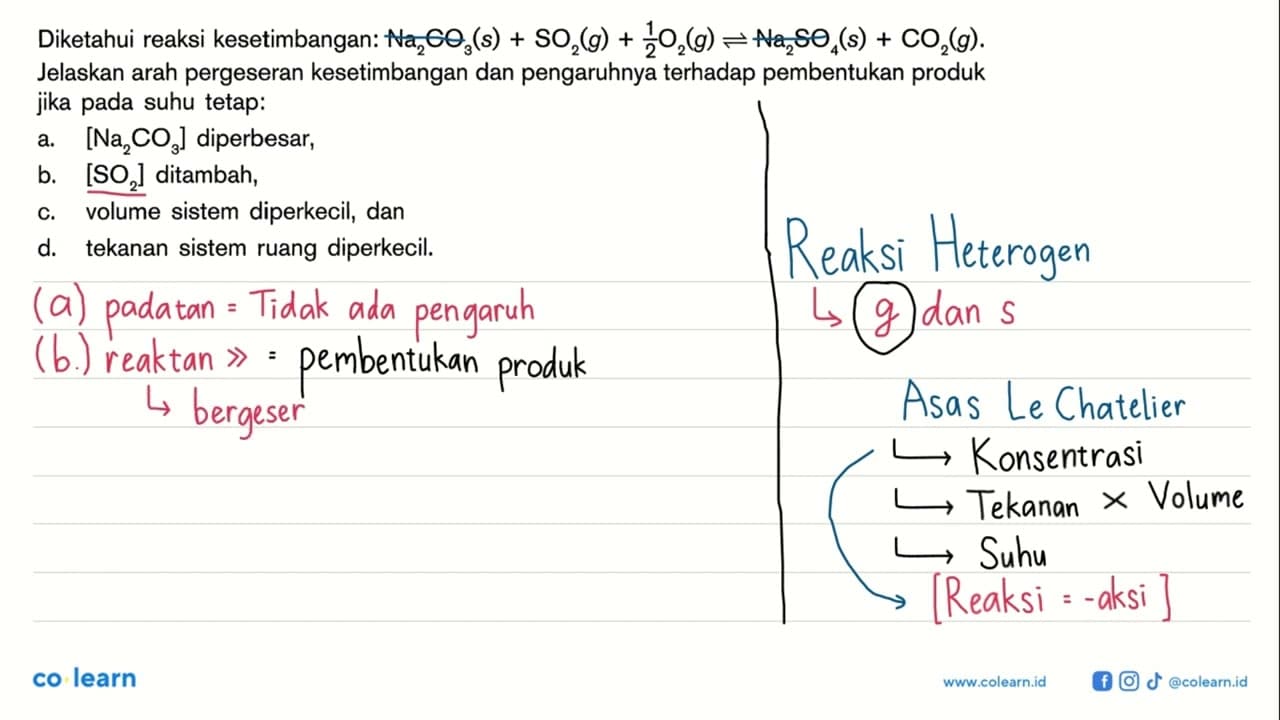 Diketahui reaksi kesetimbangan: Na₂CO₃(s) + SO₂(g) + ½O₂(g) ⇌ Na₂SO₄(s) + CO₂(g).
Jelaskan arah pergeseran kesetimbangan dan pengaruhnya terhadap pembentukan produk
jika pada suhu tetap:
a. [Na₂CO₃] diperbesar,
b. [SO₂] ditambah,
c. volume sistem diperkecil, dan
d. tekanan sistem ruang diperkecil.
(a) padatan = Tidak ada pengaruh
(b.) reaktan >> = pembentukan produk
↳ bergeser
Reaksi Heterogen
↳ g dan s
Asas Le Chatelier
↳ Konsentrasi
↳ Tekanan × Volume
↳ Suhu
[Reaksi = -aksi]
co learn
www.colearn.id
@colearn.id